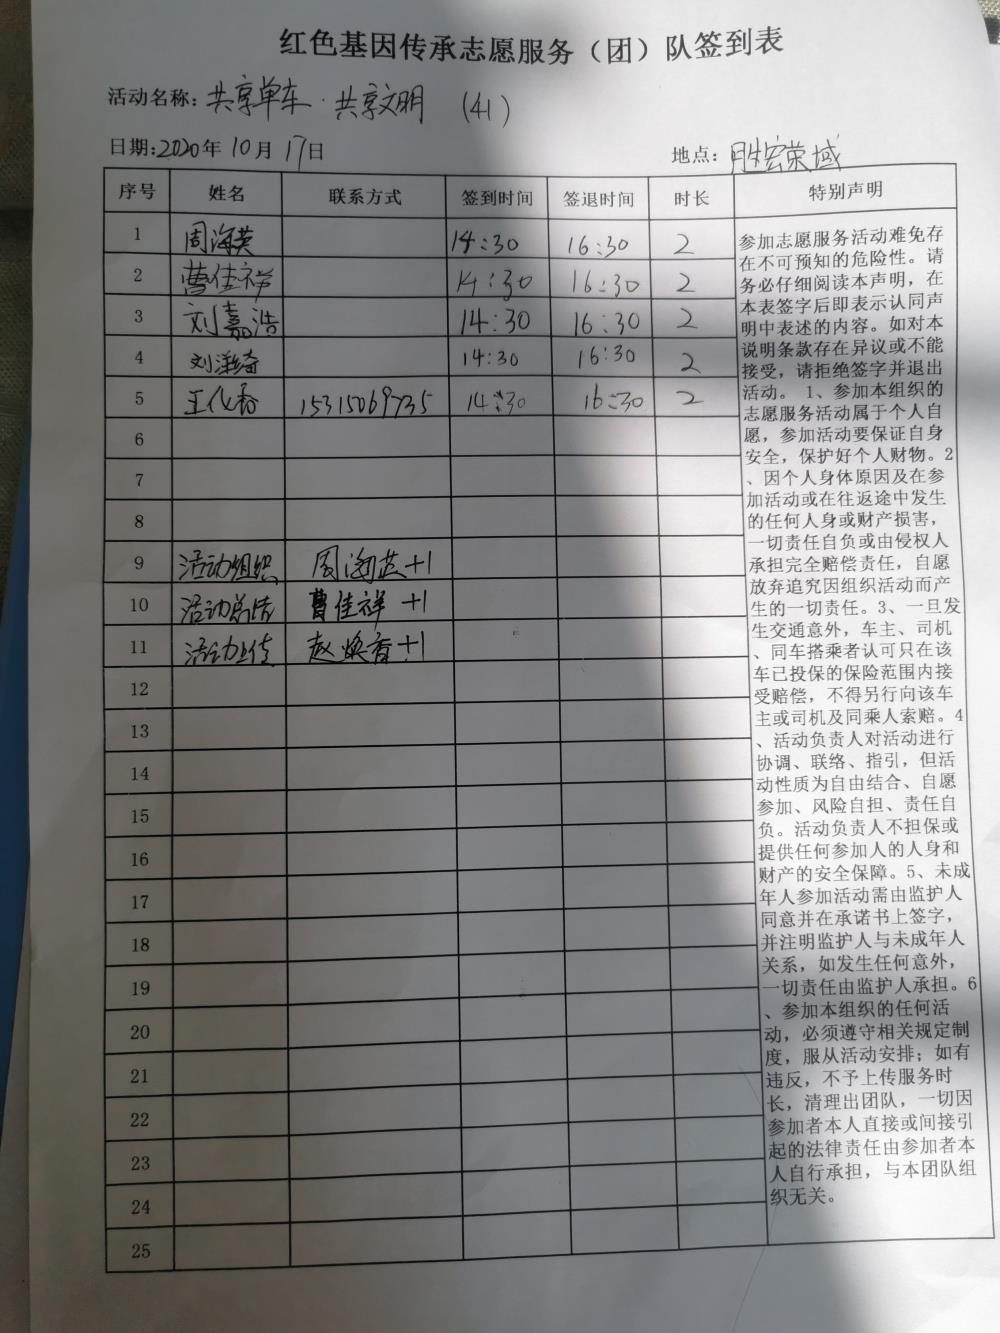 红色基因传承志愿服务（团）队签到表
活动名称：共享单车·共享文明 （41）
日期：2020年10月17日 地点：胜宏荣域
序号 姓名 联系方式 签到时间 签退时间 时长 特别声明
1 周海英 14:30 16:30 2
2 曹佳祥 14:30 16:30 2
3 刘嘉浩 14:30 16:30 2
4 刘洋绮 14:30 16:30 2
5 王化香 15315069735 14:30 16:30 2
6
7
8
9 活动组织 周海英+1
10 活动总结 曹佳祥+1
11 活动上传 赵焕香+1
12
13
14
15
16
17
18
19
20
21
22
23
24
25
参加志愿服务活动难免存
在不可预知的危险性。请
务必仔细阅读本声明，在
本表签字后即表示认同声
明中表述的内容。如对本
说明条款存在异议或不能
接受，请拒绝签字并退出
活动。 1、参加本组织的
志愿服务活动属于个人自
愿，参加活动要保证自身
安全，保护好个人财物。2
、因个人身体原因及在参
加活动或在往返途中发生
的任何人身或财产损害，
一切责任自负或由侵权人
承担完全赔偿责任，自愿
放弃追究因组织活动而产
生的一切责任。3、一旦发
生交通意外，车主、司机
、同车搭乘者认可只在该
车已投保的保险范围内接
受赔偿，不得另行向该车
主或司机及同乘人索赔。4
、活动负责人对活动进行
协调、联络、指引，但活
动性质为自由结合、自愿
参加、风险自担、责任自
负。活动负责人不担保或
提供任何参加人的人身和
财产的安全保障。5、未成
年人参加活动需由监护人
同意并在承诺书上签字，
并注明监护人与未成年人
关系，如发生任何意外，
一切责任由监护人承担。6
、参加本组织的任何活
动，必须遵守相关规定制
度，服从活动安排；如有
违反，不予上传服务时
长，清理出团队，一切因
参加者本人直接或间接引
起的法律责任由参加者本
人自行承担，与本团队组
织无关。